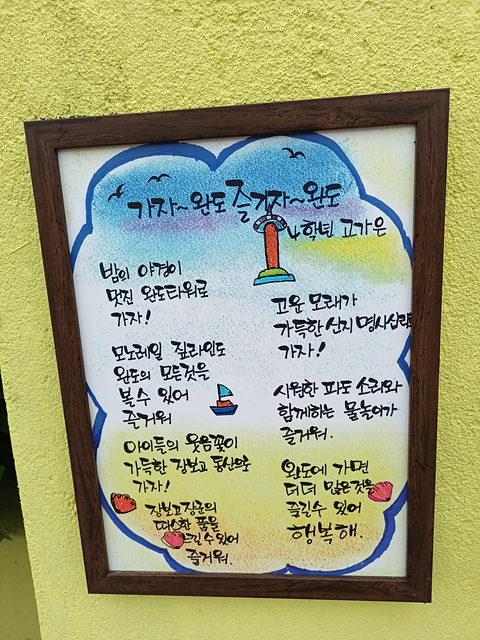 가자~완도 즐기자~완도
4학년 고가은
밤의 야경이
멋진 완도타워로
가자!
모노레일 짚라인도
완도의 모든것을
볼수 있어
즐거워
아이들의 웃음꽃이
가득한 장보고 동산으로
가자!
장보고장군의
따스한 품을
느낄수있어
즐거워.
고운 모래가
가득한 신지 명사십리로
가자!
시원한 파도 소리와
함께하는 물놀이가
즐거워.
완도에 가면
더더 많은것을
즐길수 있어
행복해.